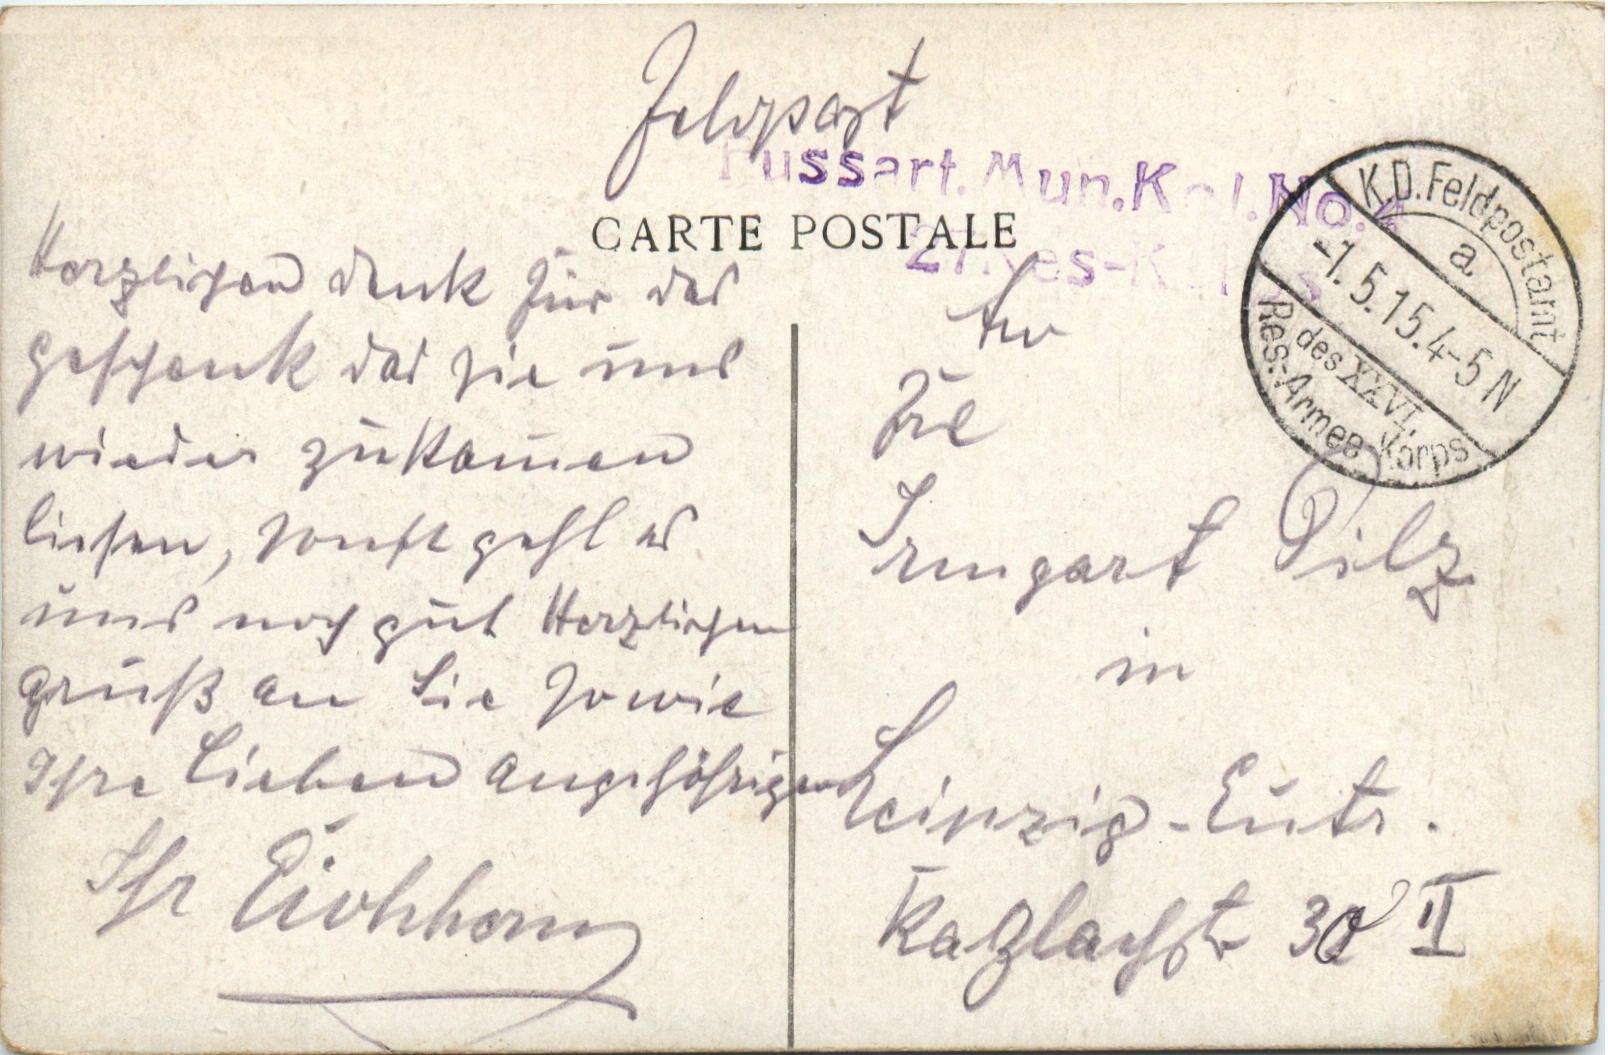 Feldpost
Fussart. Mun. Kol. No. 4
27. Res-K
CARTE POSTALE
K.D. Feldpostamt
a
-1.5.15.4-5N
des XXVI.
Res.-Armee-Korps
Herzlichen dank für das
geschenk das sie uns
wieder zukomen
liesen, sonst gehl es
uns noch gut Herzlichen
Gruß an Sie sowie
Ihre Lieben angehöhrigen
Ihr Eichhorn
An
Frl
Irmgart Pilz
in
Leipzig-Eutr.
30 II